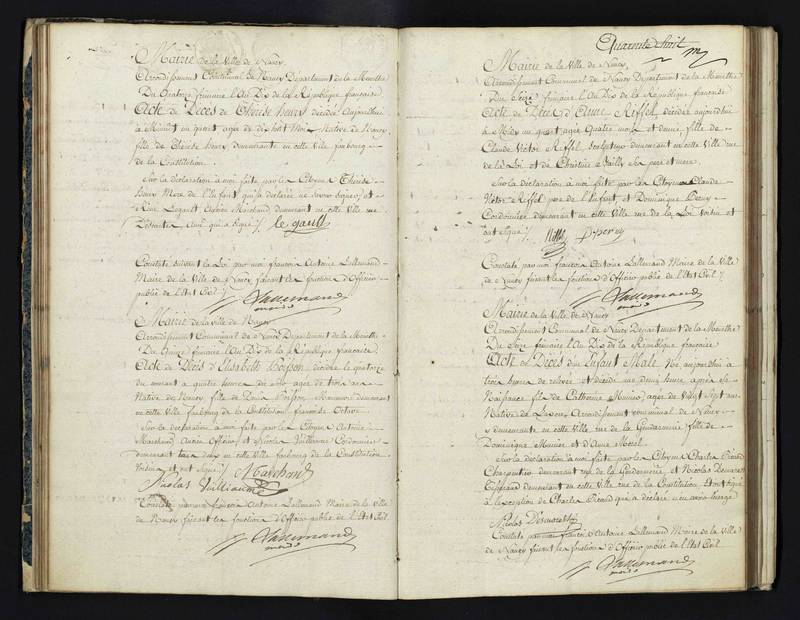 Mairie de la Ville de Nancy
Arrondissement Communal de Nancy Departement de la Meurthe
Du quatorze frimaire l'An Dix de la République française
Acte de Décès de Thérèse Henry décédée Aujourd'hui
à Minuit un quart agée de dix huit Mois Native de Nancy
fille de Thérèse henry demeurante en cette Ville faubourg
de la Constitution
Sur la déclaration à moi faite par la Citoyenne Thérèse
henry Mere de l'Enfant qui a déclarée ne savoir signer et
René Legault Marchand demeurant en cette Ville rue
qui a signé
le gault
Constaté suivant la Loi par moi françois Antoine Lallemand
Maire de la Ville de Nancy faisant les fonctions d'Officier
public de l'Etat Civil
Lallemand
maire
Mairie de la ville de Nancy
Arrondissement Communal de Nancy Departement de la Meurthe
frimaire l'An Dix de la République française
Acte de Décès d'Elisabeth Poisson décédée le quatorze
du courant à quatre heures du soir agée de trois ans
Native de Nancy fille de Poisson demeurant
en cette Ville faubourg de la Constitution
Sur la declaration à moi faite par les Citoyens Antoine
Marchand Officier et Nicolas Vuillaume Cordonnier
demeurant tous deux en cette Ville faubourg de la Constitution
Voisins et ont signé
Marchand
Nicolas Vuillaume
Constaté par moi françois Antoine Lallemand Maire de la Ville
de Nancy faisant les fonctions d'Officier public de l'Etat Civil
Lallemand
maire
Quarante huit
Mairie de la Ville de Nancy
Arrondissement Communal de Nancy Departement de la Meurthe
Du Seize frimaire l'An Dix de la République française
Acte de Décès d'Anne Riffel, décédée aujourd'hui
à Midi un quart agée Quatre mois et demie fille de
Claude Victor Riffel sculpteur demeurant en cette Ville rue
de la Loi et de Christine Vailly ses pere et mere.
Sur la déclaration à moi faite par les Citoyens Claude
Victor Riffel pere de l'Enfant et Dominique
Cordonnier demeurant en cette Ville rue de la Loi voisin et
ont signé
Constaté par moi françois Antoine Lallemand Maire de la Ville
de Nancy faisant les fonctions d'Officier public de l'Etat Civil
Lallemand
maire
Mairie de la Ville de Nancy
Arrondissement Communal de Nancy Departement de la Meurthe
Du Seize frimaire l'An Dix de la République française
Acte de Décès d'un Enfant Male Né aujourd'hui à
trois heures de relevée et décédé une demie heure après sa
Naissance fils de Catherine Munier agée de Vingt Sept ans
Native de Arrondissement communal de Nancy
demeurante en cette Ville rue de la Gendarmerie fille de
Dominique Munier et d'Anne Morel
Sur la déclaration à moi faite par les Citoyens Charles Picard
Charpentier demeurant rue de la Gendarmerie et Nicolas
Tisserand demeurant en cette Ville rue de la Constitution Et ont signé
à l'exception de Charles Picard qui a déclaré
Nicolas
Constaté par moi françois Antoine Lallemand Maire de la Ville
de Nancy faisant les fonctions d'Officier public de l'Etat Civil
Lallemand
maire